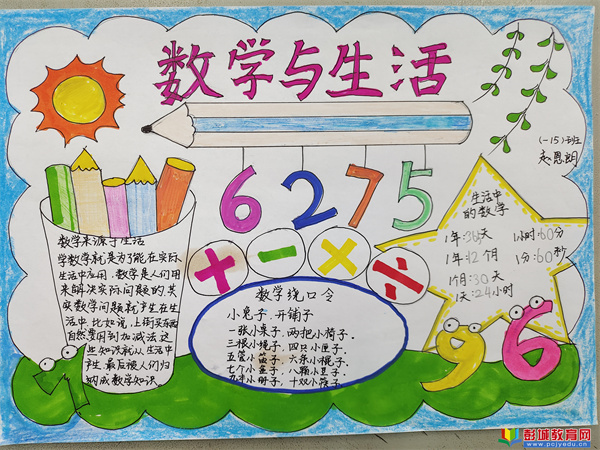 数学与生活
(一15)班
6 2 7 5
+ - × ÷
数学来源于生活
学数学就是为了能在实际
生活中应用.数学是人们用
来解决实际问题的.其
实数学问题就产生在生
活中.比如说,上街买东西
自然要用到加减法.这
些知识就从生活中
产生.最后被人们归
纳成数学知识.
数学绕口令
小兔子.开铺子
一张小桌子.两把小椅子.
三根小绳子.四只小匣子.
五管小笛子.六条小棍子.
七个小盒子.八颗小豆子.
九本小册子.十双小筷子.
生活中
的数学
1年:365天 1小时:60分
1年:12个月 1分:60秒
1月:30天
1天:24小时
1
9 6
彭城教育网
www.pcjyedu.cn